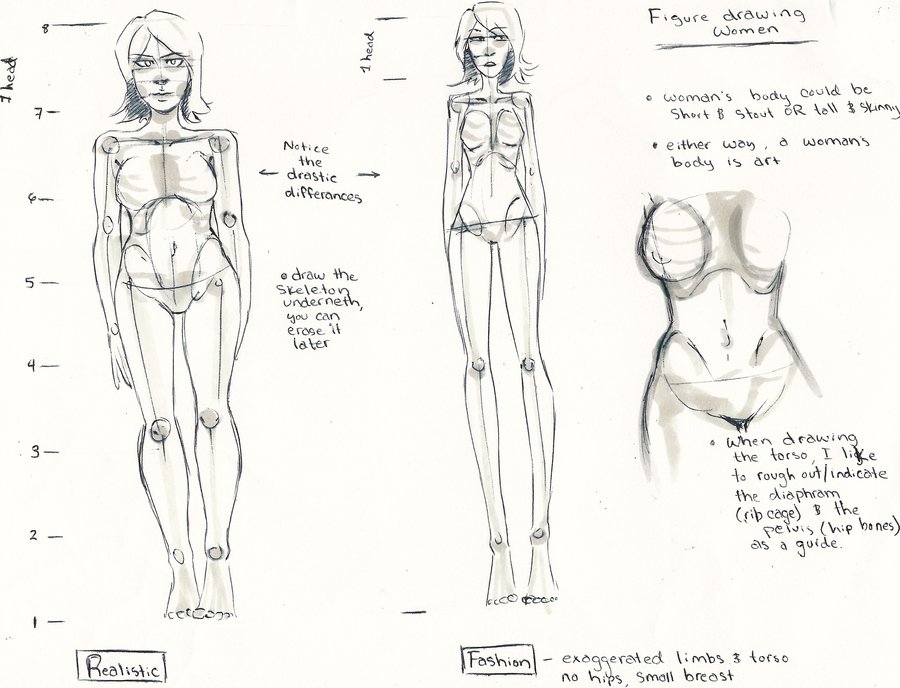 Figure drawing
Women
8
1 head
7
6
5
4
3
2
1
1 head
Notice
the
drastic
differances
• draw the
skeleton
underneth,
you can
erase it
later
• woman's body could be
short & stout OR tall & skinny
• either way, a woman's
body is art
• when drawing
the torso, I like
to rough out/indicate
the diaphram
(rib cage) & the
pelvis (hip bones)
as a guide.
Realistic
Fashion - exaggerated limbs & torso
no hips, small breast